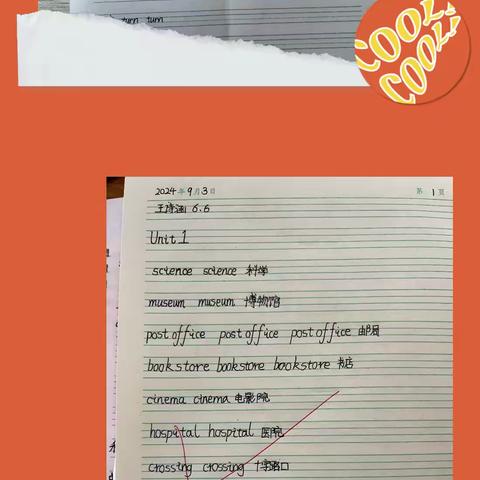 turn turn
COOL
COOL
2024年9月3日 第1页
6.6
Unit 1
science science 科学
museum museum 博物馆
post office post office post office 邮局
bookstore bookstore bookstore 书店
cinema cinema 电影院
hospital hospital 医院
crossing crossing 十字路口